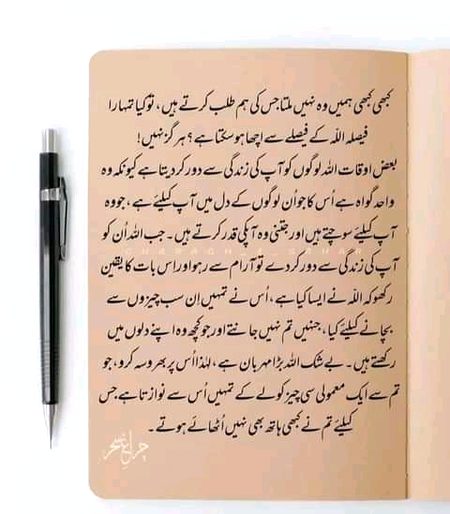 کبھی کبھی ہمیں وہ نہیں ملتا جس کی ہم طلب کرتے ہیں، تو کیا تمہارا
فیصلہ اللہ کے فیصلے سے اچھا ہو سکتا ہے؟ ہر گز نہیں!
بعض اوقات اللہ لوگوں کو آپ کی زندگی سے دور کر دیتا ہے کیونکہ وہ
واحد گواہ ہے اُس کا جو اُن لوگوں کے دل میں آپ کیلئے ہے، جو وہ
آپ کیلئے سوچتے ہیں اور جتنی وہ آپکی قدر کرتے ہیں۔ جب اللہ اُن کو
آپ کی زندگی سے دور کر دے تو آرام سے رہو اور اِس بات کا یقین
رکھو کہ اللہ نے ایسا کیا ہے، اُس نے تمہیں اِن سب چیزوں سے
بچانے کیلئے کیا، جنہیں تم نہیں جانتے اور جو کچھ وہ اپنے دلوں میں
رکھتے ہیں۔ بے شک اللہ بڑا مہربان ہے، لہٰذا اُس پر بھروسہ کرو، جو
تم سے ایک معمولی سی چیز کو لے کے تمہیں اُس سے نوازتا ہے جس
کیلئے تم نے کبھی ہاتھ بھی نہیں اُٹھائے ہوتے۔
چراغِ سحر